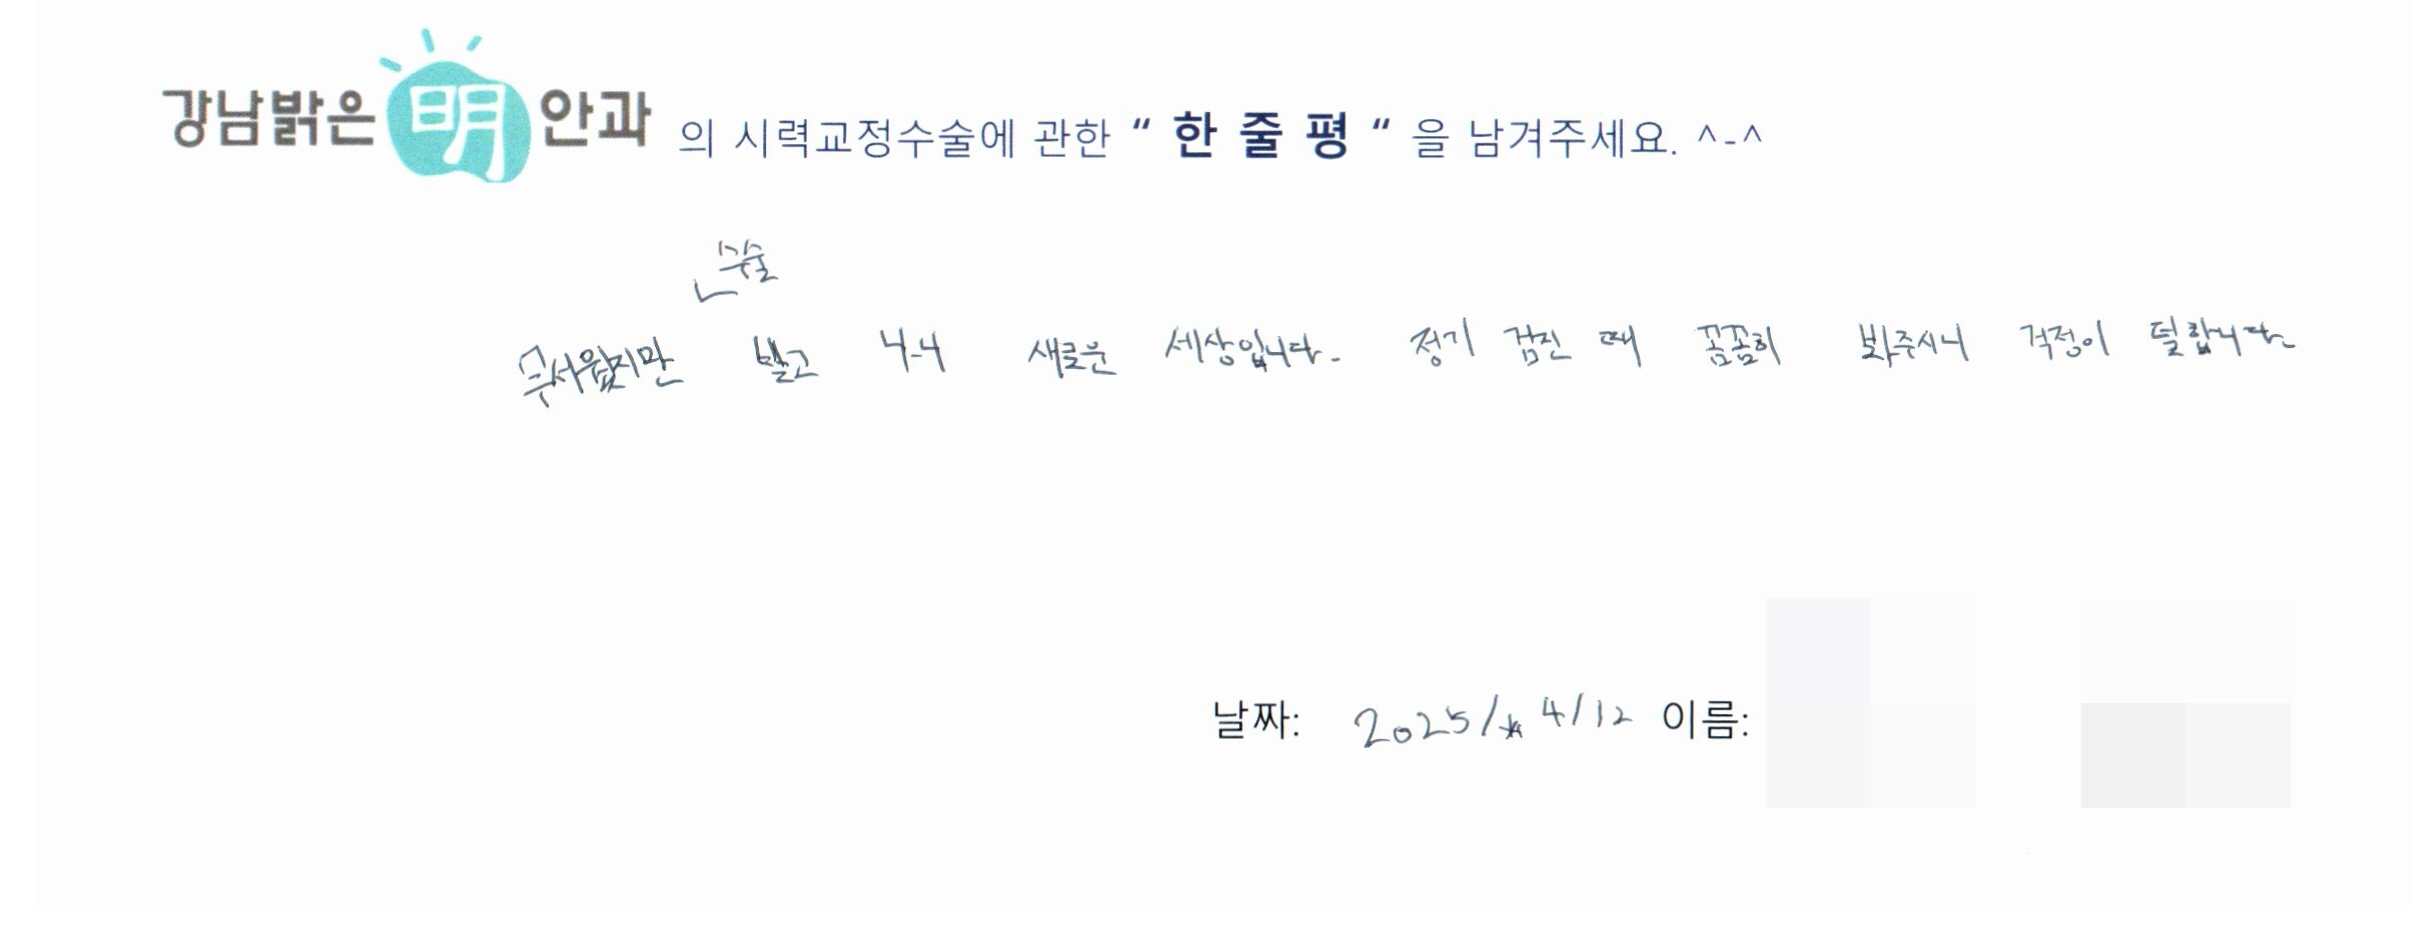 강남밝은 明 안과 의 시력교정수술에 관한 “ 한 줄 평 “ 을 남겨주세요. ^-^
수술
무서웠지만 받고 나니 새로운 세상입니다. 정기 검진 때 꼼꼼히 봐주시니 걱정이 덜합니다.
날짜: 2025/ 4/12 이름: